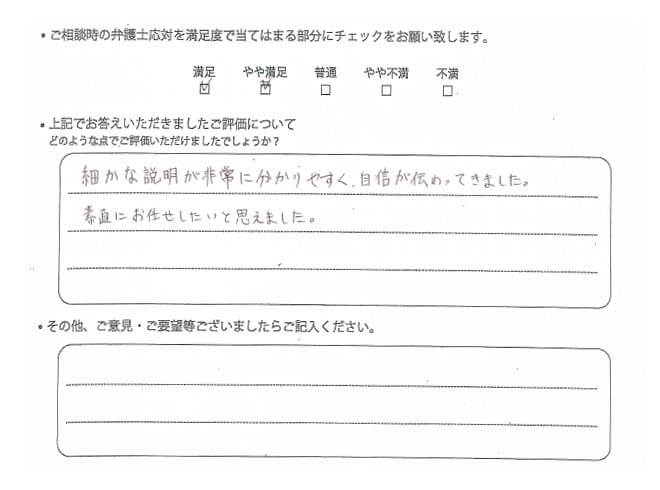 ・ご相談時の弁護士応対を満足度で当てはまる部分にチェックをお願い致します。
満足 やや満足 普通 やや不満 不満
☑ ☑ □ □ □
・上記でお答えいただきましたご評価について
どのような点でご評価いただけましたでしょうか?
細かな説明が非常に分かりやすく、自信が伝わってきました。
素直にお任せしたいと思えました。
・その他、ご意見・ご要望等ございましたらご記入ください。